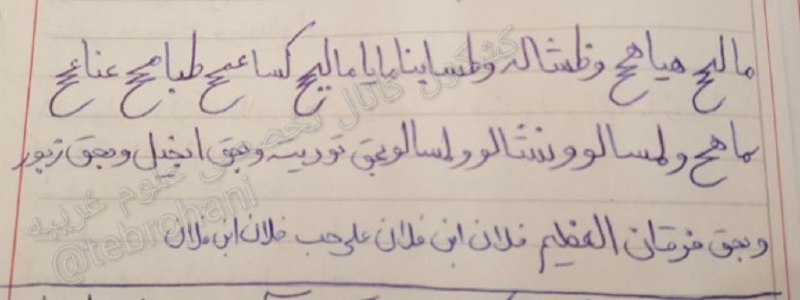 مالیح هیاهح وظشاله وطسابنامایا مالیح کساعیح طبامح عناع
ماهح ولمسالو ونشالو ولمسالو بحق توریت و بحق انجیل و بحق زبور
و بحق فرقان العظیم فلان ابن فلان علی حب فلان ابن فلان
کشکول کانال تخصصی علوم غریبه
@tebrohani